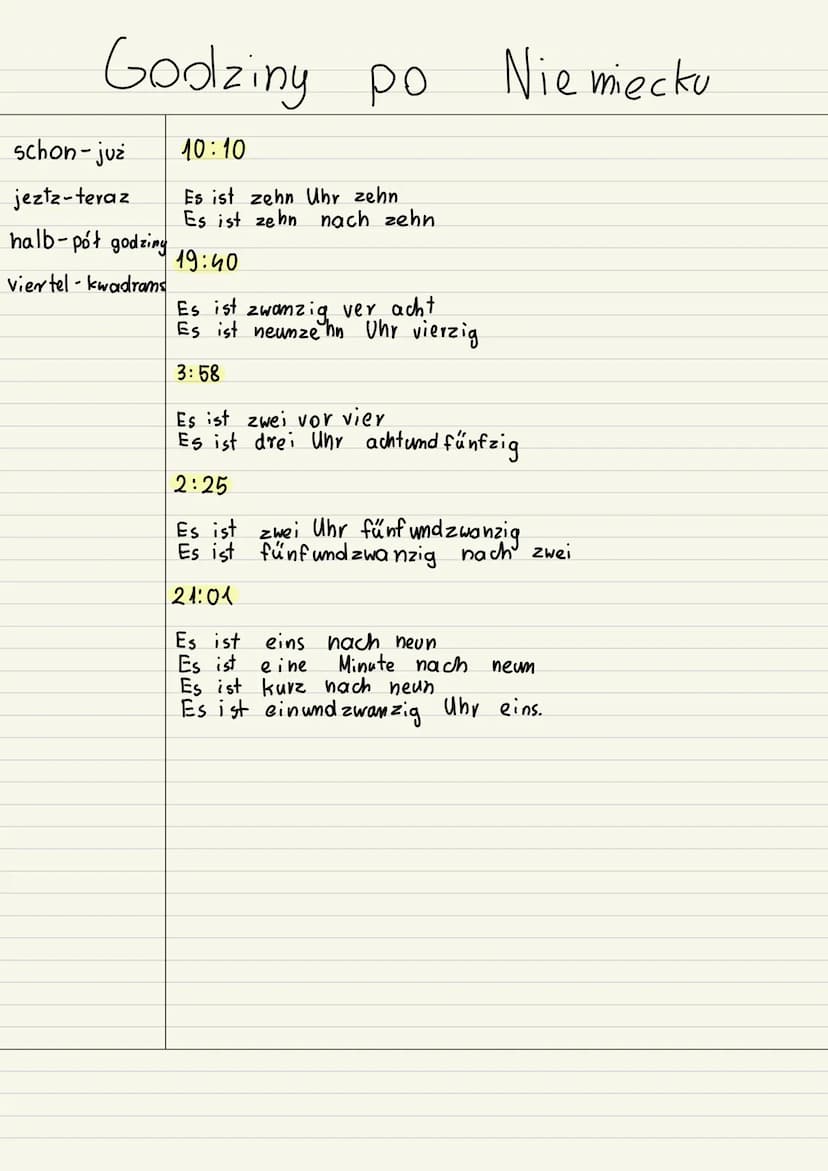 Godziny po Niemiecku
schon - już
jeztz - teraz
halb - pół godziny
viertel - kwadrans
10:10
Es ist zehn Uhr zehn
Es ist zehn nach zehn
19:40
Es ist zwanzig ver acht
Es ist neunzehn Uhr vierzig
3:58
Es ist zwei vor vier
Es ist drei Uhr achtundfünfzig
2:25
Es ist zwei Uhr fünfundzwanzig
Es ist fünfundzwanzig nach zwei
21:01
Es ist eins nach neun
Es ist eine Minute nach neun
Es ist kurz nach neun
Es ist einundzwanzig Uhr eins.